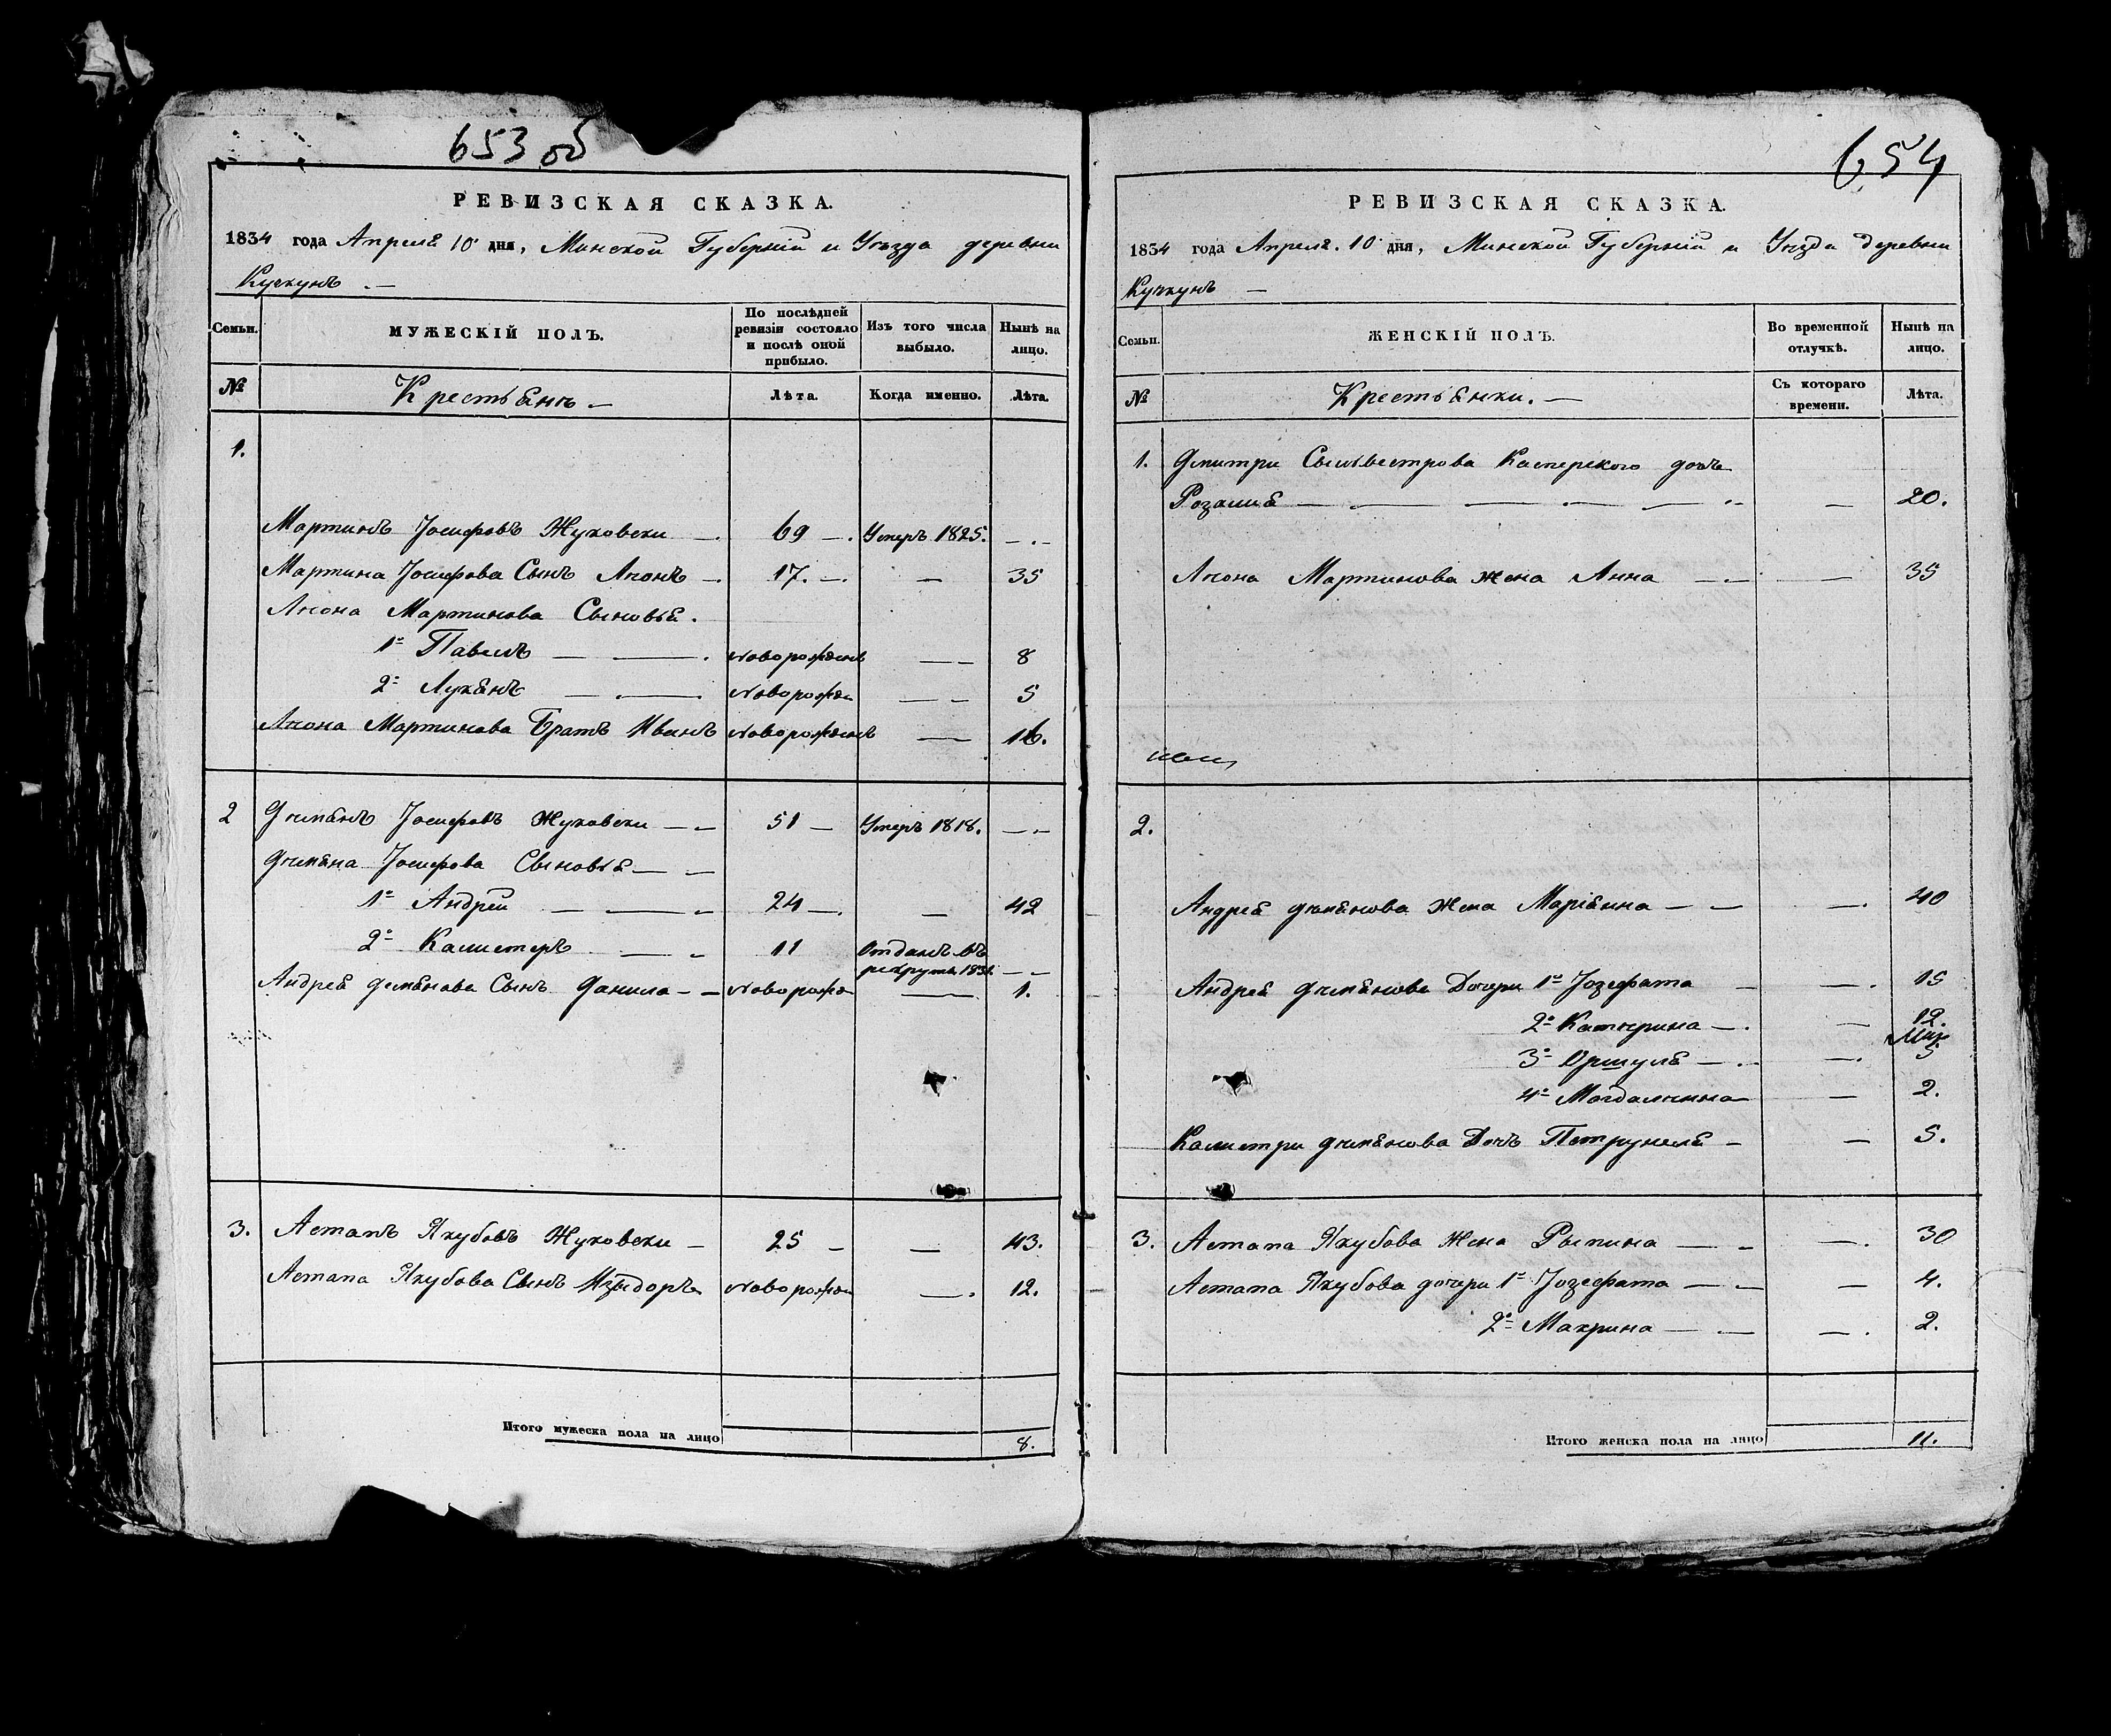 653 об
РЕВИЗСКАЯ СКАЗКА.
1834 года Апреля 10 дня, Минской Губерніи и Уѣзда деревни
Кучкунъ. —
Семьи. МУЖЕСКІЙ ПОЛЪ. По послѣдней ревизіи состояло и послѣ оной прибыло. Изъ того числа выбыло. Нынѣ на лицо.
№ Крестьянъ. — Лѣта. Когда именно. Лѣта.
1.
Мартинъ Іосифовъ Жуковски — 69 —. Умеръ 1825. —.—
Мартина Іосифова Сынъ Леонъ —. 17. —. — 35
Леона Мартинова Сыновья.
1й Павелъ — —. Новорожден — 8
2й Лукянъ — —. Новорожден — 5
Леона Мартинова Братъ Иванъ Новорожден — 16.
2 Демянъ Іосифовъ Жуковски — 51 — Умеръ 1818. —.—
Демяна Іосифова Сыновья — —
1й Андрей — — 24 —. — 42
2й Калистеръ — — 11 Отданъ въ
рекруты 1831. — —
Андрея Демянова Сынъ Данила — Новорожд — 1.
3. Астапъ Якубовъ Жуковски — 25 — — 43.
Астапа Якубова Сынъ Изыдоръ Новорожд —. 12.
Итого мужеска пола на лицо 8.
654
РЕВИЗСКАЯ СКАЗКА.
1834 года Апреля. 10 дня, Минской Губерніи и Уѣзда деревни
Кучкунъ —
Семьи. ЖЕНСКІЙ ПОЛЪ. Во временной отлучкѣ. Нынѣ на лицо.
№ Крестьянки. — Съ котораго времени. Лѣта.
1. Дмитри Сыльвестрова Касперского дочь
Розалия — — — — 20.
Леона Мартинова жена Анна — — — 35
2.
Андрея Демянова Жена Маріянна — — —. 40
Андрея Демянова Дочери 1я Іозефата — —. 15
2я Катерина —. — 12.
3я Оршуля —. —. 5
4я Магдаленна — 2.
Калистри Демянова Дочь Петрунеля — — 5.
3. Астапа Якубова Жена Рыпина — — —. 30
Астапа Якубова дочери 1я Іозефата — — — 4.
2я Макрина — — —. 2.
Итого женска пола на лицо 11.